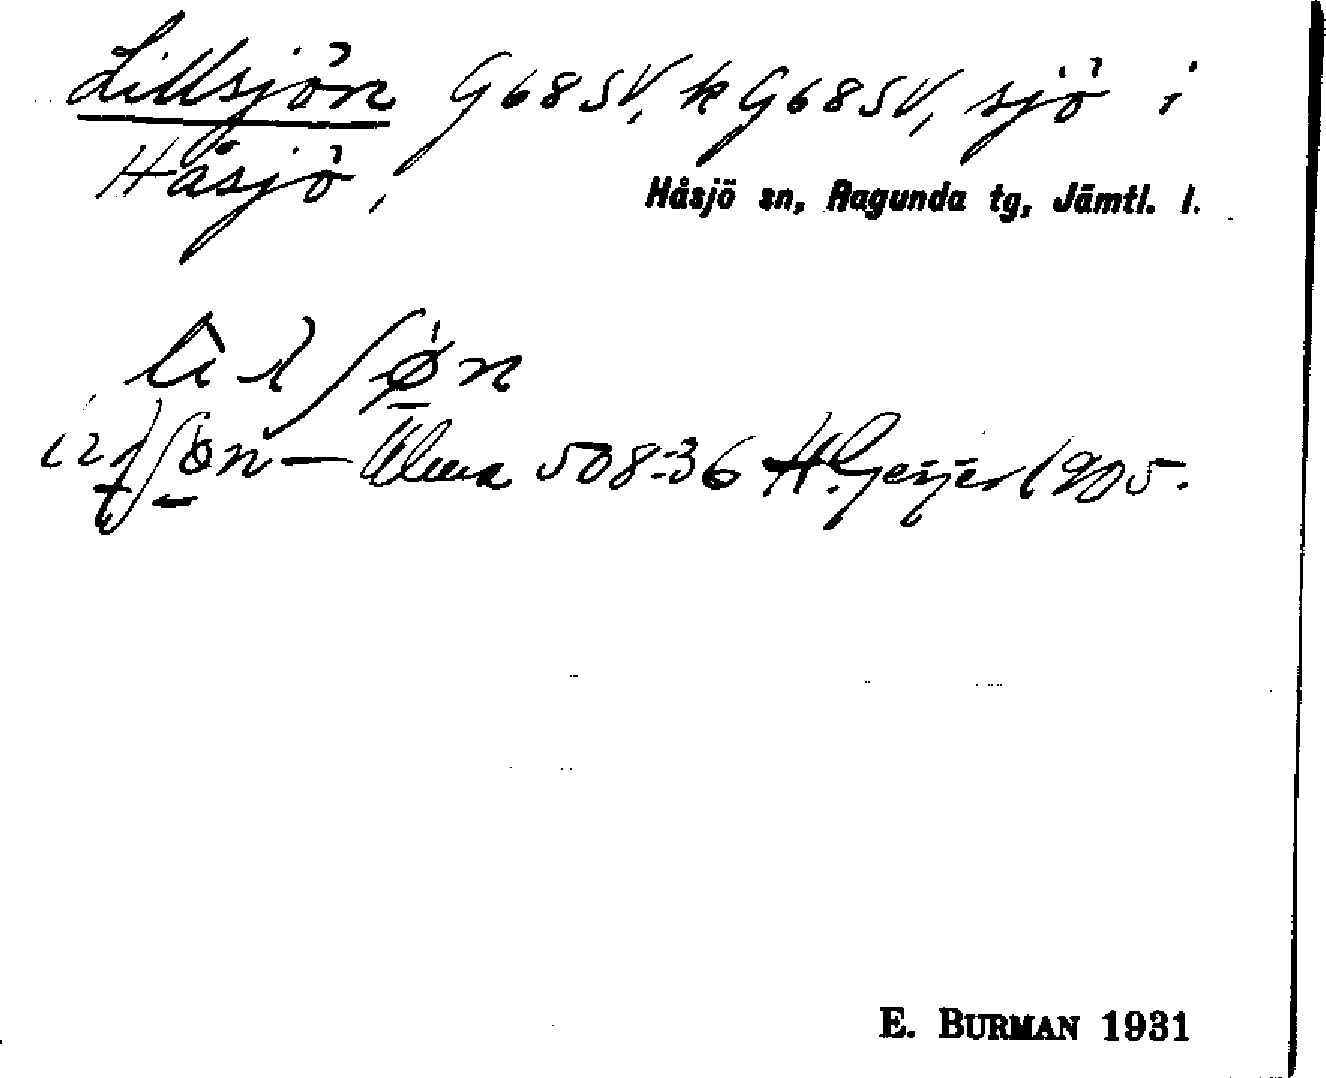 Lillsjön G68SV, k G68SV, sjö i
Håsjö,
Håsjö sn, Ragunda tg, Jämtl. l.
508:36 H. Geijer 1905.
E. BURMAN 1931